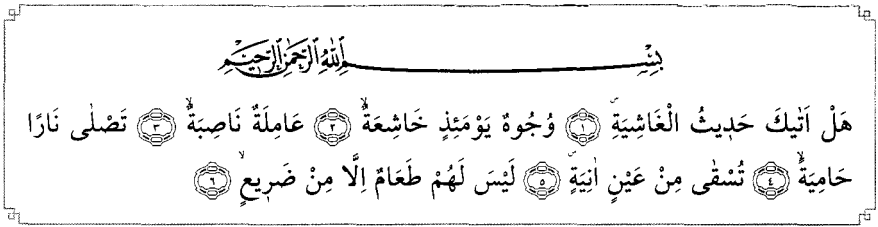 بِسْمِ اللّٰهِ الرَّحْمٰنِ الرَّحِيمِ
هَلْ اَتٰيكَ حَدٖيثُ الْغَاشِيَةِؕ ﴿١﴾ وُجُوهٌ يَوْمَئِذٍ خَاشِعَةٌۙ ﴿٢﴾ عَامِلَةٌ نَاصِبَةٌۙ ﴿٣﴾ تَصْلٰى نَارًا
حَامِيَةًۙ ﴿٤﴾ تُسْقٰى مِنْ عَيْنٍ اٰنِيَةٍؕ ﴿٥﴾ لَيْسَ لَهُمْ طَعَامٌ اِلَّا مِنْ ضَرٖيعٍۙ ﴿٦﴾